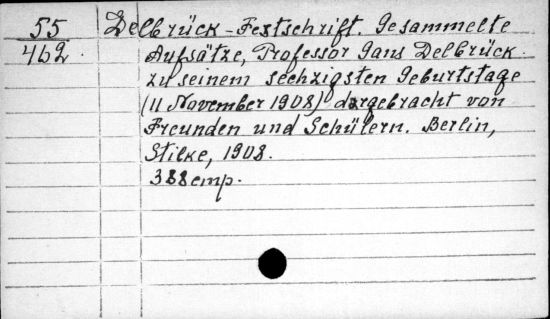 55 Delbrück-Festschrift. Gesammelte
462 Aufsätze, Professor Gans Delbrück
zu seinem sechzigsten Geburtstage
(11 November 1908) dargebracht von
Freunden und Schülern. Berlin,
Stilke, 1908.
388 стр.